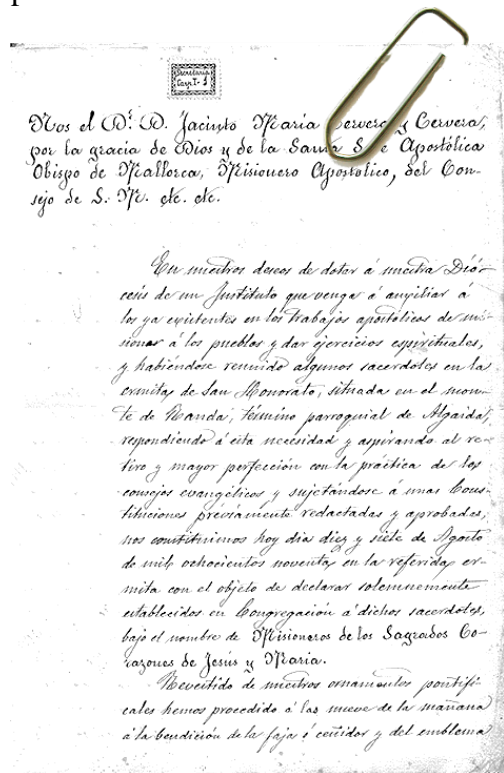 Secretaria
Nos el Dr. D. Jacinto María Cervera y Cervera,
por la gracia de Dios y de la Santa Sede Apostólica
Obispo de Mallorca, Misionero Apostólico, del Con-
sejo de S. M. etc. etc.
En nuestros deseos de dotar á nuestra Dió-
cesis de un Instituto que venga á auxiliar á
los ya existentes en los trabajos apostólicos de mi-
sionar á los pueblos y dar ejercicios espirituales,
y habiéndose reunido algunos sacerdotes en la
ermita de San Honorato, situada en el mon-
te de Randa, término parroquial de Algaida,
respondiendo á esta necesidad y aspirando al re-
tiro y mayor perfección con la práctica de los
consejos evangélicos y sujetándose á unas Cons-
tituciones préviamente redactadas y aprobadas,
nos constituimos hoy dia diez y siete de Agosto
de mil ochocientos noventa en la referida er-
mita con el objeto de declarar solemnemente
establecidos en Congregación á dichos sacerdotes,
bajo el nombre de Misioneros de los Sagrados Co-
razones de Jesús y Maria.
Revestido de nuestros ornamentos pontifi-
cales hemos procedido á las nueve de la mañana
á la bendición de la faja ó ceñidor y del emblema